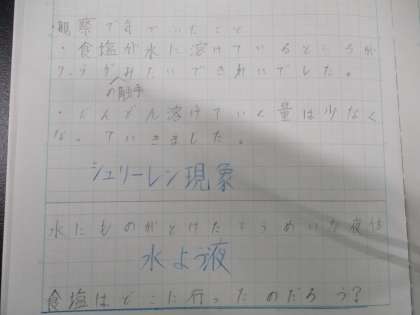 ・観察で気づいたこと
・食塩が水に溶けているところが
クラゲみたいできれいでした。
の触手
・どんどん溶けていく量は少なく
なっていきました。
シュリーレン現象
水にものがとけたとうめいな液体
水よう液
食塩はどこに行ったのだろう？